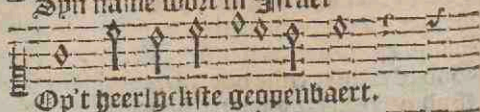 Syn name wort in Israel
Op't heerlyckste geopenbaert.